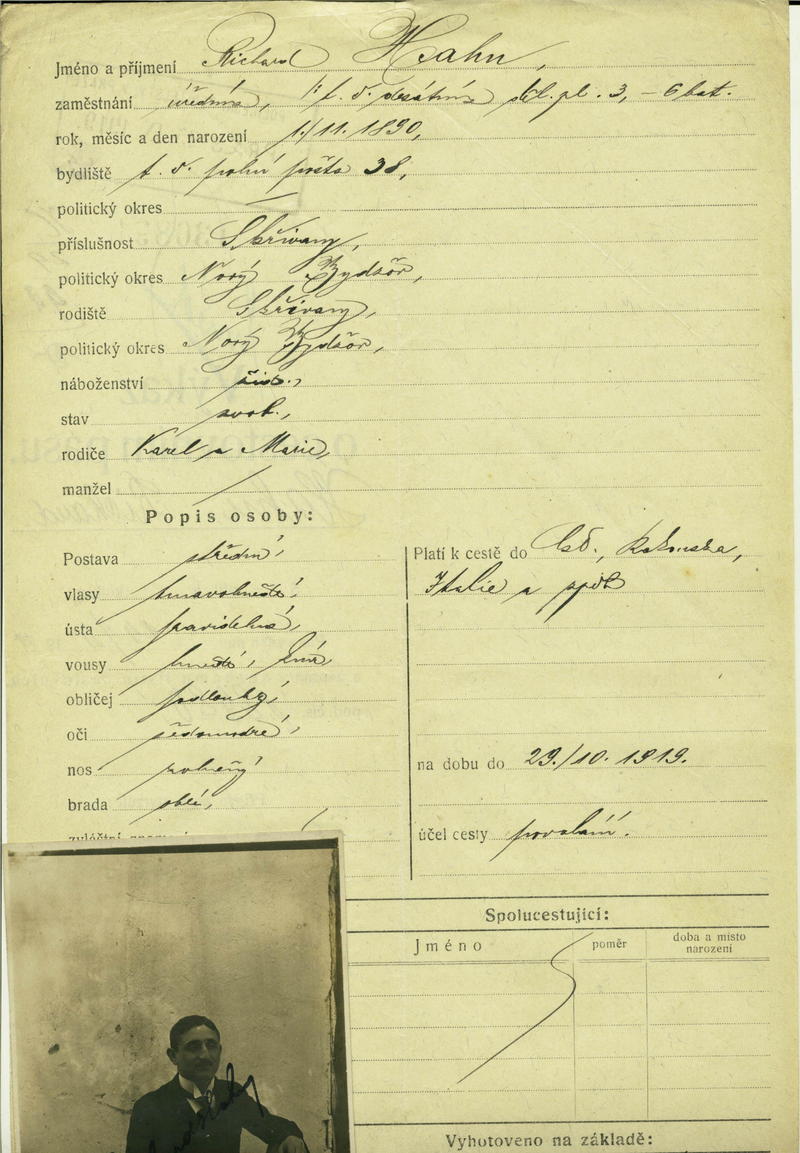 Jméno a příjmení Richard Hahn,
zaměstnání úředník, t. č. desátník děl. pl. 3, – 6 bat.
rok, měsíc a den narození 1./11. 1890,
bydliště t. č. polní pošta 38,
politický okres —
příslušnost Skřivany,
politický okres Nový Bydžov,
rodiště Skřivany,
politický okres Nový Bydžov,
náboženství žid.,
stav svob.,
rodiče Karel a Marie,
manžel /
Popis osoby:
Postava střední,
vlasy tmavohnědé,
ústa pravidelná,
vousy hnědé,
obličej podlouhlý,
oči šedomodré,
nos
brada oblá,
Platí k cestě do Rakouska,
Italie a zpět
na dobu do 29./10. 1919.
účel cesty povolání.
Spolucestující:
Jméno poměr doba a místo narození
Vyhotoveno na základě: